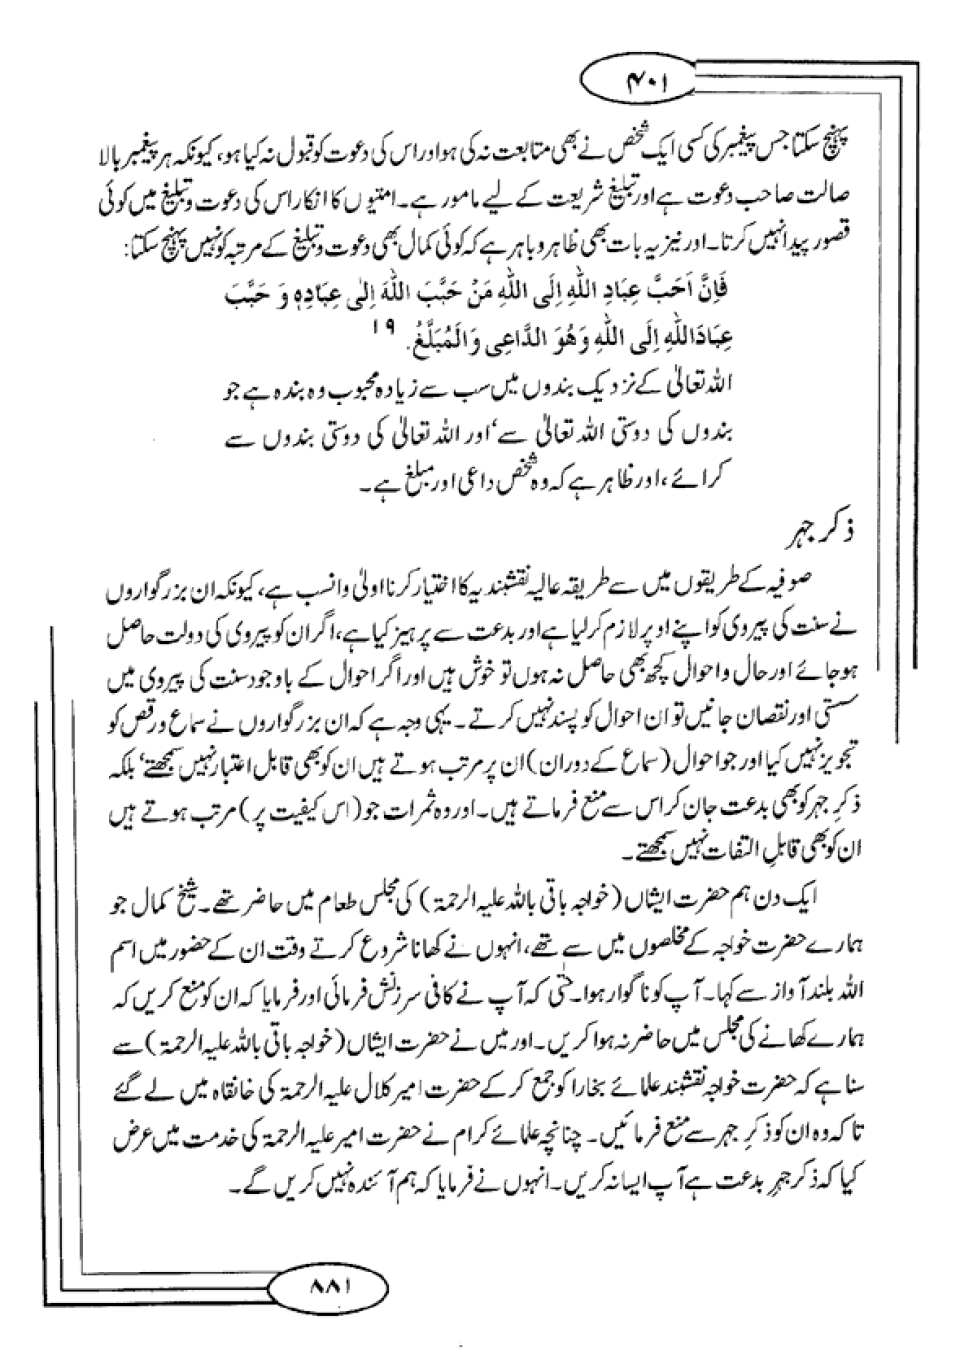 ۴۰۱
پہنچ سکتا جس پیغمبر کی کسی ایک شخص نے بھی متابعت نہ کی ہو اور اس کی دعوت کو قبول نہ کیا ہو، کیونکہ ہر پیغمبر بالا
صالت صاحب دعوت ہے اور تبلیغ شریعت کے لیے مامور ہے۔ امتیوں کا انکار اس کی دعوت و تبلیغ میں کوئی
قصور پیدا نہیں کرتا۔ اور نیز یہ بات بھی ظاہر و باہر ہے کہ کوئی کمال بھی دعوت و تبلیغ کے مرتبہ کو نہیں پہنچ سکتا:
فَاِنَّ اَحَبَّ عِبَادِ اللّٰهِ اِلَى اللّٰهِ مَنْ حَبَّبَ اللّٰهَ اِلٰى عِبَادِهٖ وَ حَبَّبَ
عِبَادَاللّٰهِ اِلَى اللّٰهِ وَهُوَ الدَّاعِى وَالْمُبَلِّغُ. ۱۹
اللہ تعالیٰ کے نزدیک بندوں میں سب سے زیادہ محبوب وہ بندہ ہے جو
بندوں کی دوستی اللہ تعالیٰ سے، اور اللہ تعالیٰ کی دوستی بندوں سے
کرائے، اور ظاہر ہے کہ وہ شخص داعی اور مبلغ ہے۔
ذکر جہر
صوفیہ کے طریقوں میں سے طریقہ عالیہ نقشبندیہ کا اختیار کرنا اولیٰ وانسب ہے، کیونکہ ان بزرگواروں
نے سنت کی پیروی کو اپنے اوپر لازم کر لیا ہے اور بدعت سے پرہیز کیا ہے، اگر ان کو پیروی کی دولت حاصل
ہو جائے اور حال و احوال کچھ بھی حاصل نہ ہوں تو خوش ہیں اور اگر احوال کے باوجود سنت کی پیروی میں
سستی اور نقصان جانیں تو ان احوال کو پسند نہیں کرتے۔ یہی وجہ ہے کہ ان بزرگواروں نے سماع و رقص کو
تجویز نہیں کیا اور جو احوال (سماع کے دوران) ان پر مرتب ہوتے ہیں ان کو بھی قابل اعتبار نہیں سمجھتے، بلکہ
ذکرِ جہر کو بھی بدعت جان کر اس سے منع فرماتے ہیں۔ اور وہ ثمرات جو (اس کیفیت پر) مرتب ہوتے ہیں
ان کو بھی قابلِ التفات نہیں سمجھتے۔
ایک دن ہم حضرت ایشاں (خواجہ باقی باللہ علیہ الرحمۃ) کی مجلس طعام میں حاضر تھے۔ شیخ کمال جو
ہمارے حضرت خواجہ کے مخلصوں میں سے تھے، انہوں نے کھانا شروع کرتے وقت ان کے حضور میں اسم
اللہ بلند آواز سے کہا۔ آپ کو ناگوار ہوا۔ حتیٰ کہ آپ نے کافی سرزنش فرمائی اور فرمایا کہ ان کو منع کریں کہ
ہمارے کھانے کی مجلس میں حاضر نہ ہوا کریں۔ اور میں نے حضرت ایشاں (خواجہ باقی باللہ علیہ الرحمۃ) سے
سنا ہے کہ حضرت خواجہ نقشبند علمائے بخارا کو جمع کر کے حضرت امیر کلال علیہ الرحمۃ کی خانقاہ میں لے گئے
تاکہ وہ ان کو ذکرِ جہر سے منع فرمائیں۔ چنانچہ علمائے کرام نے حضرت امیر علیہ الرحمۃ کی خدمت میں عرض
کیا کہ ذکر جہر بدعت ہے آپ ایسا نہ کریں۔ انہوں نے فرمایا کہ ہم آئندہ نہیں کریں گے۔
۸۸۱